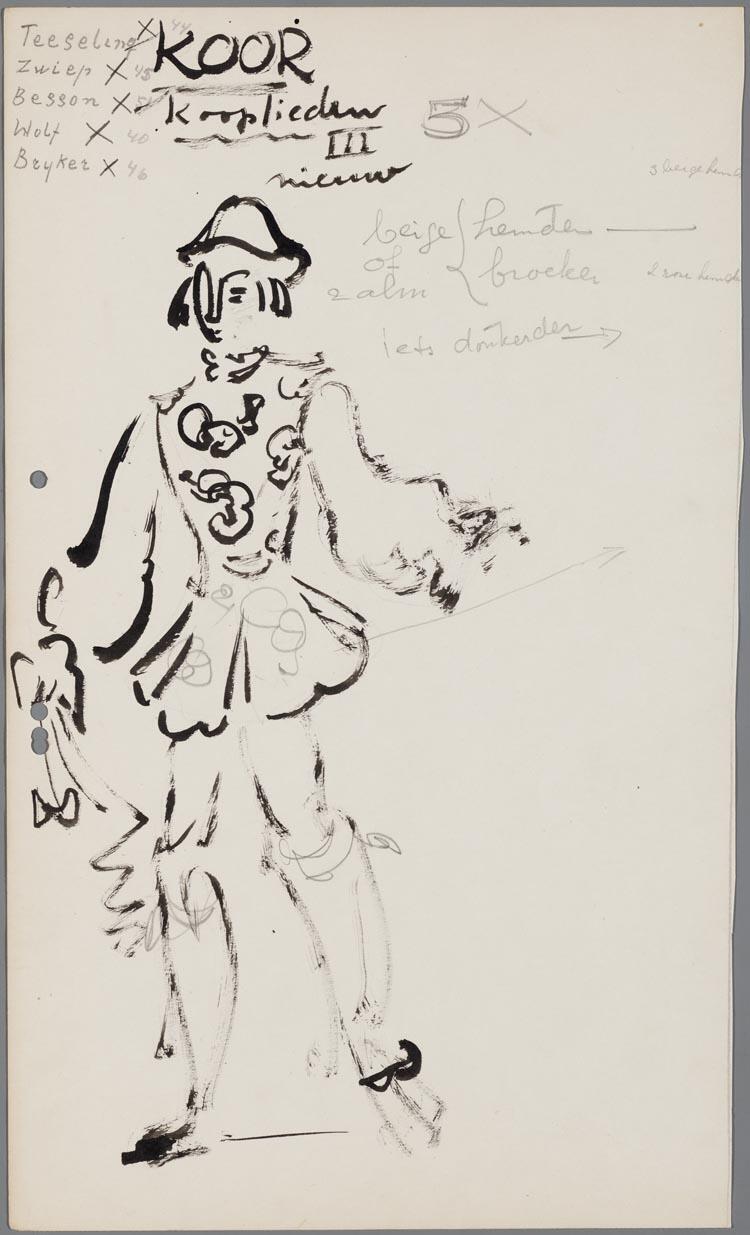 Teeseling X 44
Zwiep X 45
Besson X 51
Wolf X 40
Bryker X 46
KOOR
Kooplieden
III
nieuw
5X
beige hemden
of
zalm broeken
iets donkerder
3 beige hemd
2 rose hemden